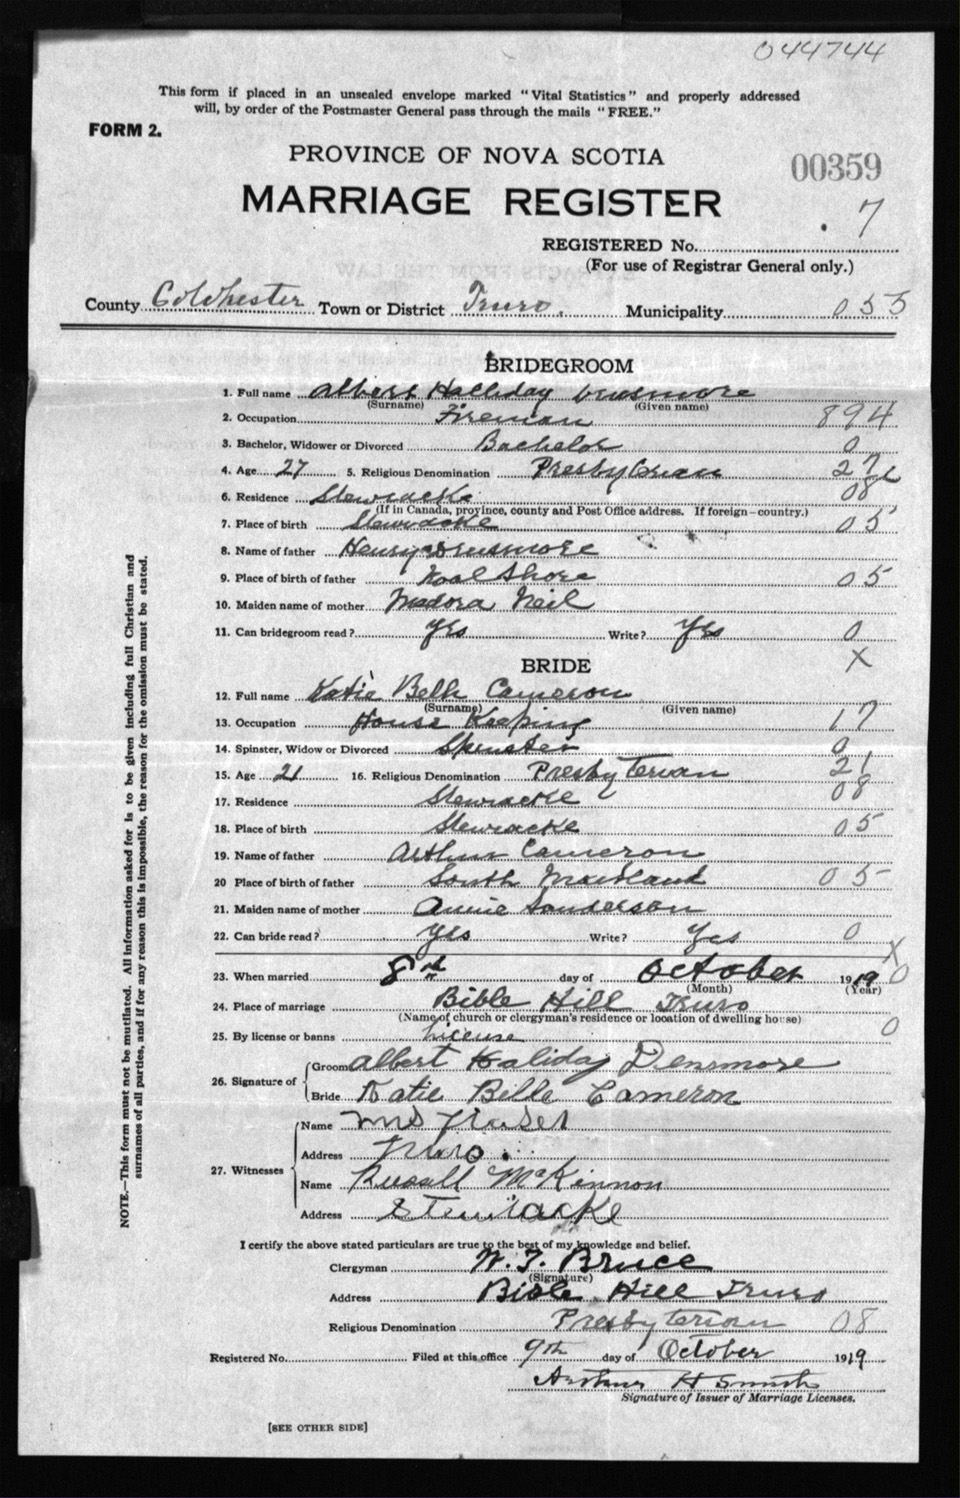 044744
This form if placed in an unsealed envelope marked "Vital Statistics" and properly addressed
will, by order of the Postmaster General pass through the mails "FREE."
FORM 2.
PROVINCE OF NOVA SCOTIA
00359
MARRIAGE REGISTER
7
REGISTERED No.
(For use of Registrar General only.)
County Colchester Town or District Truro. Municipality 055
BRIDEGROOM
1. Full name Albert Halliday
(Surname) (Given name)
2. Occupation Fireman 894
3. Bachelor, Widower or Divorced Bachelor 0
4. Age 27 5. Religious Denomination Presbyterian 27
6. Residence Stewiacke 08
(If in Canada, province, county and Post Office address. If foreign—country.)
7. Place of birth Stewiacke 05
8. Name of father Henry
9. Place of birth of father Noel Shore 05
10. Maiden name of mother Medora Neil
11. Can bridegroom read? Yes Write? Yes 0
X
BRIDE
12. Full name Katie Belle Cameron
(Surname) (Given name)
13. Occupation House Keeping 17
14. Spinster, Widow or Divorced Spinster 0
15. Age 21 16. Religious Denomination Presbyterian 21
17. Residence Stewiacke 08
18. Place of birth Stewiacke 05
19. Name of father Arthur Cameron
20 Place of birth of father South Maitland 05
21. Maiden name of mother Annie Sanderson
22. Can bride read? Yes Write? Yes 0
X
23. When married 8th day of October 1919 0
(Month) (Year)
24. Place of marriage Bible Hill Truro
(Name of church or clergyman's residence or location of dwelling house) 0
25. By license or banns License
26. Signature of Groom Albert Haliday Densmore
Bride Katie Belle Cameron
27. Witnesses
Name Mrs Fraser
Address Truro.
Name Russell McKinnon
Address Stewiacke
I certify the above stated particulars are true to the best of my knowledge and belief.
Clergyman W. T. Bruce
(Signature)
Address Bible Hill Truro
Religious Denomination Presbyterian 08
Registered No. Filed at this office 9th day of October 1919
Arthur H Smith
Signature of Issuer of Marriage Licenses.
[SEE OTHER SIDE]
NOTE.—This form must not be mutilated. All information asked for is to be given including full Christian and
surnames of all parties, and if for any reason this is impossible, the reason for the omission must be stated.